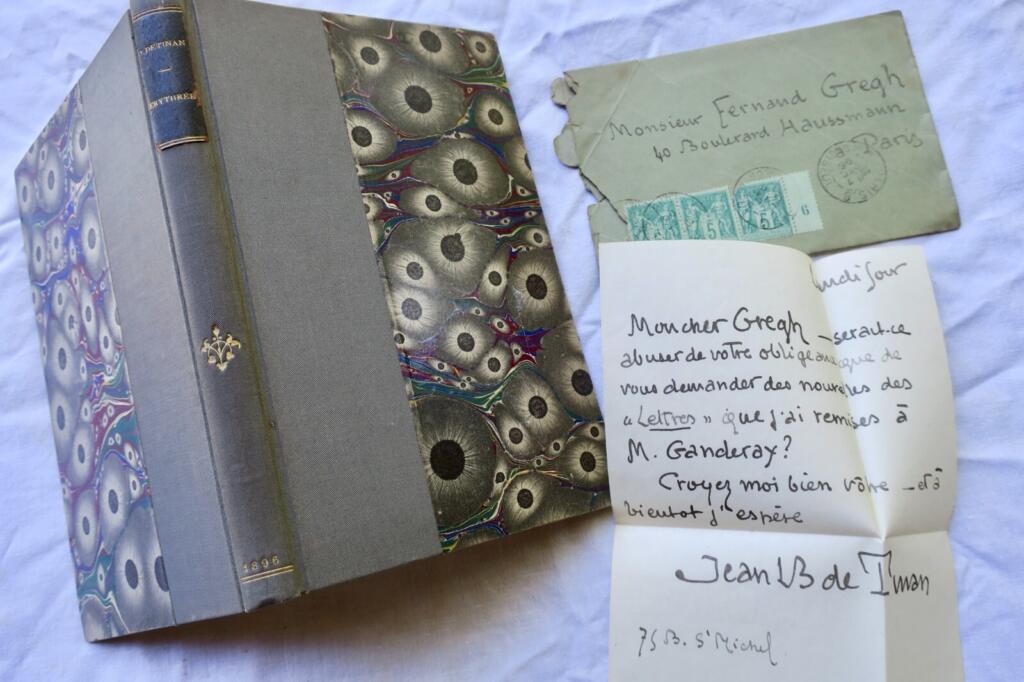 DE TINAN
ERYTHRÉE
1896
Monsieur Fernand Gregh
40 Boulevard Haussmann
Paris
5
5
6
Mon cher Gregh – serait-ce
abuser de votre obligeance que de
vous demander des nouvelles des
« Lettres » que j'ai remises à
M. Ganderax?
Croyez moi bien vôtre – et à
bientot j'espère
Jean LB de Tinan
75 B. St Michel